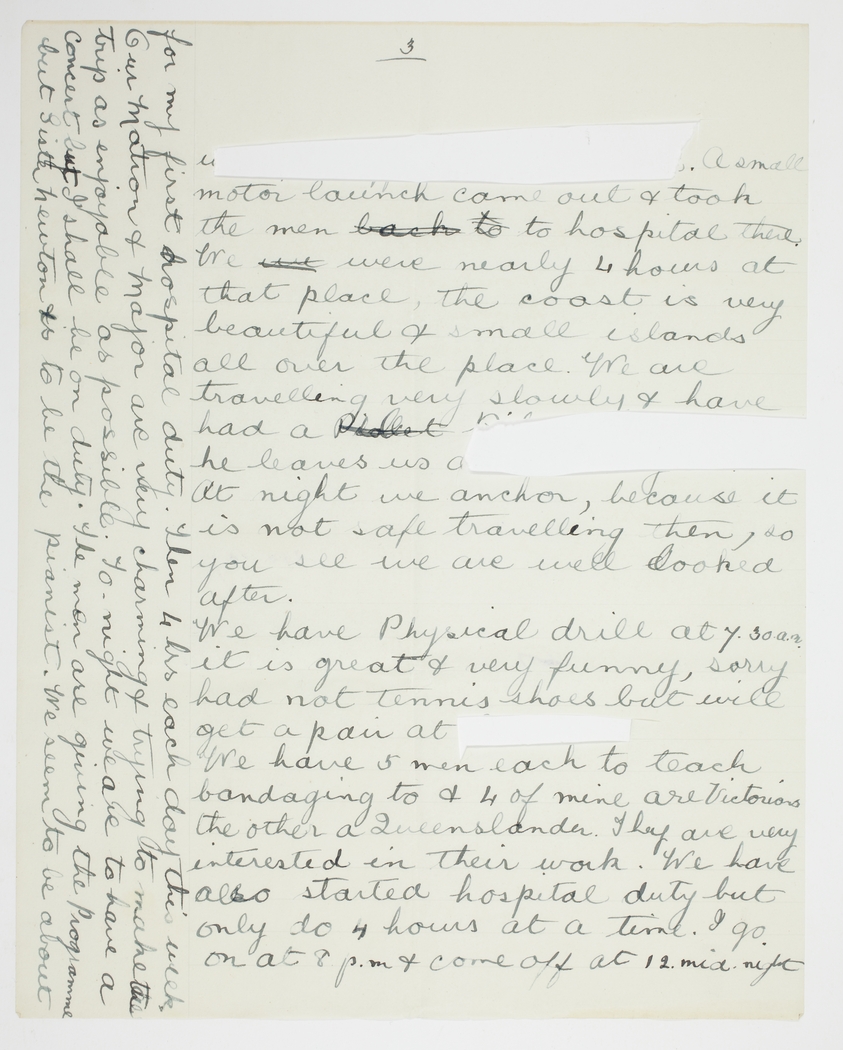 3
A small
motor launch came out & took
the men back to to hospital there.
We were nearly 4 hours at
that place, the coast is very
beautiful & small islands
all over the place. We are
travelling very slowly & have
had a
he leaves us
At night we anchor, because it
is not safe travelling then, so
you see we are well looked
after.
We have Physical drill at 7.30 a.m.
it is great & very funny, sorry
had not tennis shoes but will
get a pair at
We have 5 men each to teach
bandaging to & 4 of mine are Victorians
the other a Queenslander. They are very
interested in their work. We have
also started hospital duty but
only do 4 hours at a time. I go
on at 8 p.m & come off at 12. mid. night
for my first hospital duty. Then 4 hrs each day this week
Our Matron & Major are very charming & trying to make the
trip as enjoyable as possible. To-night we are to have a
concert but I shall be on duty. The men are giving the Programme
but Sister Newton is to be the pianist. We seem to be about